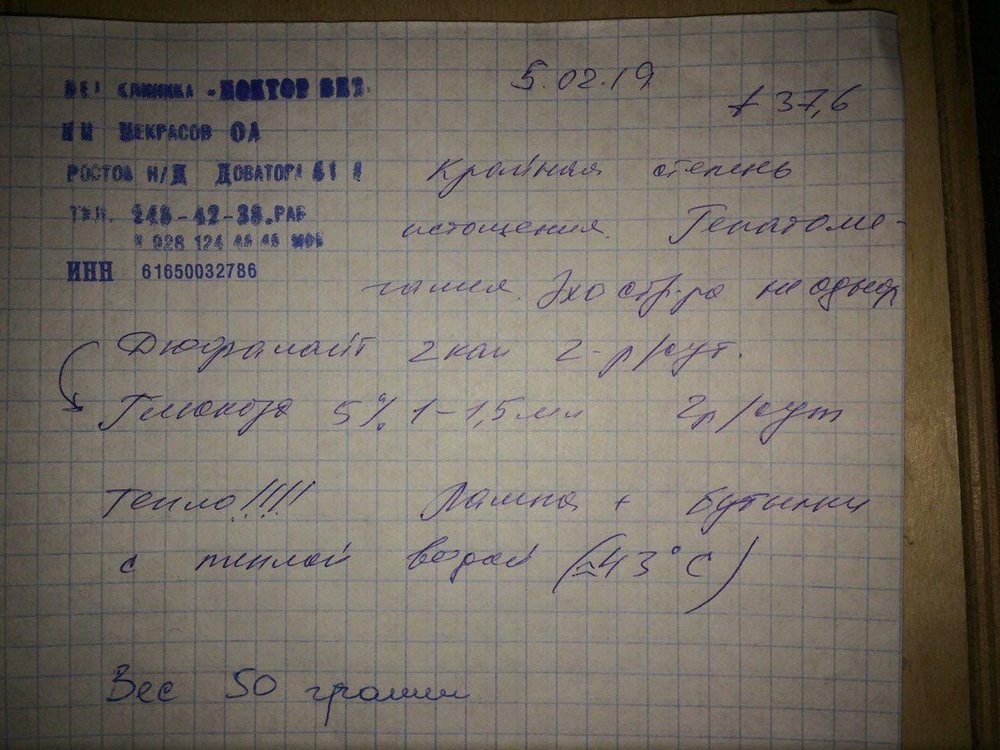 ВЕТ КЛИНИКА - ДОКТОР ВЕТ.
5.02.19
t 37,6
ИП НЕКРАСОВ ОА
РОСТОВ Н/Д ДОВАТОРА 61
ТЕЛ. 243-42-38.РАБ
928 124 МОБ
ИНН 61650032786
Крайняя степень
истощения. Гепатоме-
галия. Эхо стр-ра неоднор
Дюфалайт 2 кап 2-р/сут.
Глюкоза 5% 1-1,5 мл 2р/сут
Тепло!!!! Лампа + бутылки
с теплой водой (≈43°C)
Вес 50 грамм